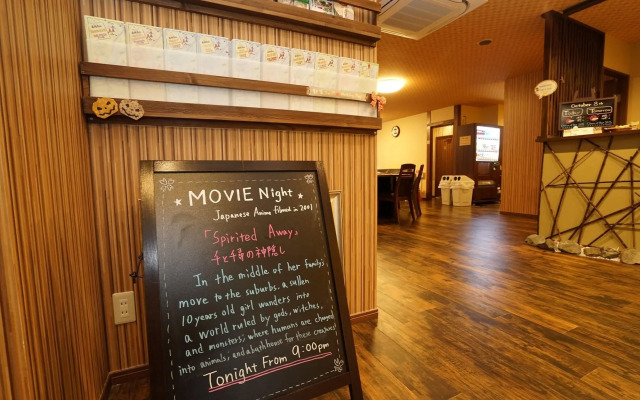 ★ MOVIE Night ★
Japanese Anime filmed in 2001
「Spirited Away」
千と千尋の神隠し
In the middle of her family's
move to the suburbs, a sullen
10 years old girl wanders into
a world ruled by gods, witches,
and monsters; where humans are changed
into animals; and a bathhouse for these creatures!
Tonight From 9:00pm
October
Today
Tomorrow